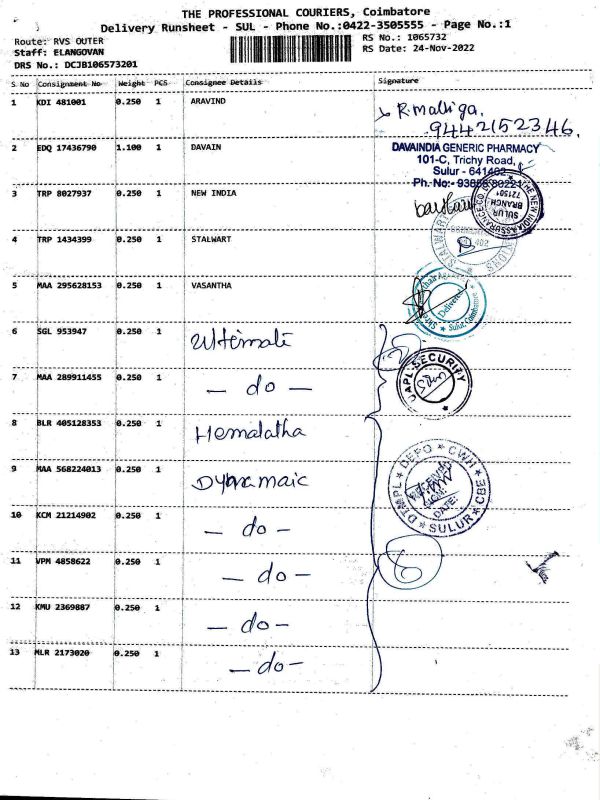 THE PROFESSIONAL COURIERS, Coimbatore
Delivery Runsheet - SUL - Phone No.:0422-3505555 - Page No.:1
Route: RVS OUTER
Staff: ELANGOVAN
DRS No.: DCJB106573201
RS No.: 1065732
RS Date: 24-Nov-2022
S No Consignment No Weight PCS Consignee Details Signature
1 KDI 481001 0.250 1 ARAVIND
R. Malliga.
9442152346.
2 EDQ 17436790 1.100 1 DAVAIN
DAVAINDIA GENERIC PHARMACY
101-C, Trichy Road,
Sulur - 641402
Ph. No:-
3 TRP 8027937 0.250 1 NEW INDIA
THE NEW INDIA ASSURANCE CO.
SULUR
BRANCH
721501
4 TRP 1434399 0.250 1 STALWART
5 MAA 295628153 0.250 1 VASANTHA
Delivered
Sulur, Coimbatore
6 SGL 953947 0.250 1 Ultimate
7 MAA 289911455 0.250 1 - do -
UAPL-SECURITY
8 BLR 405128353 0.250 1 Hemalatha
9 MAA 568224013 0.250 1 Dynamaic
DTMPL ★ DEPO ★ CWH ★ CBE ★ SULUR ★
RECEIVED
DATE:
10 KCM 21214902 0.250 1 - do -
11 VPM 4858622 0.250 1 - do -
12 KMU 2369887 0.250 1 - do -
13 MLR 2173020 0.250 1 - do -